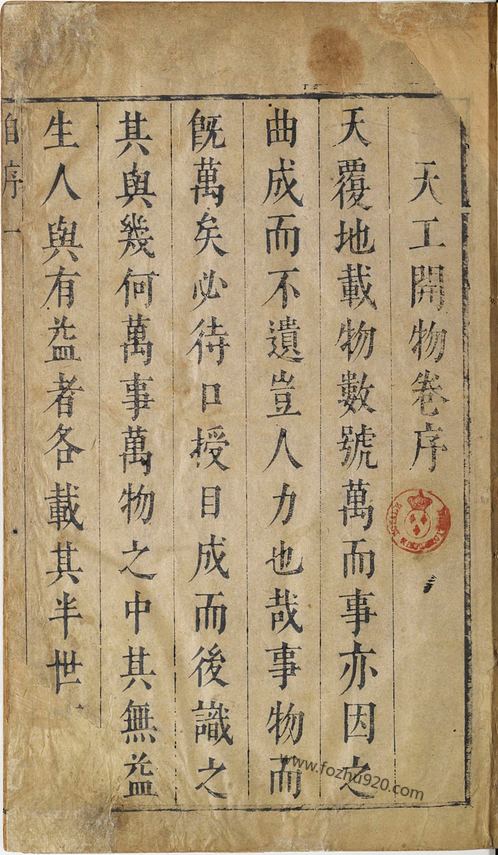 天工開物卷序
天覆地載物數號萬而事亦因之
曲成而不遺豈人力也哉事物而
旣萬矣必待口授目成而後識之
其與幾何萬事萬物之中其無益
生人與有益者各載其半世
自序一
www.fozhu920.com